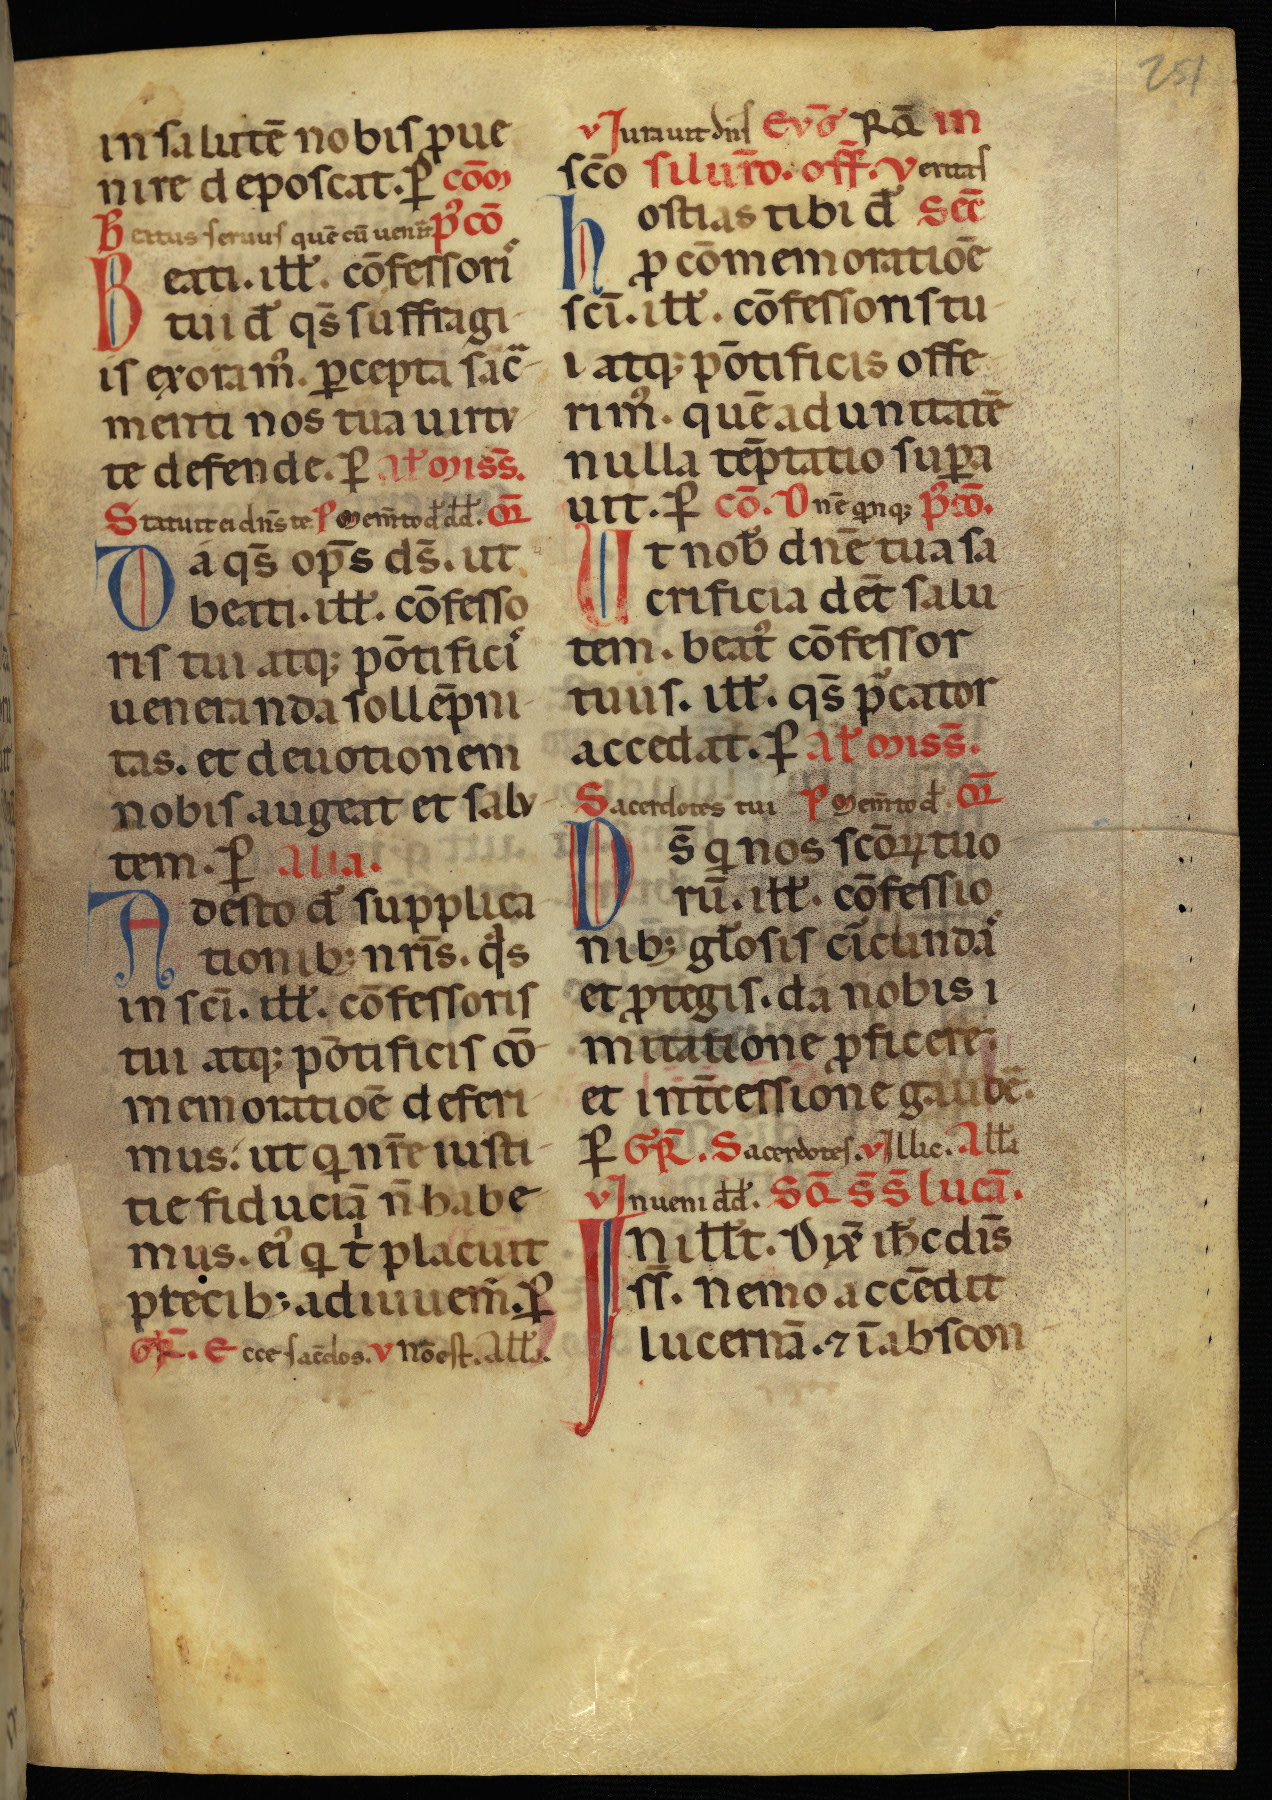 251
in salutē nobis pue
nire deposcat. ꝑ cōm
Beatus seruus quē cū uen̄it p̄ cō
Beati. iƚƚ. cōfessori᷒
tui d̄ qs̄ suffragi
is exoram᷒. ꝑcepta sac̄
menti nos tua uirtv
te defende. ꝑ Aƚ miss̄.
Statuit ei dn̄s te P Mem̄to d̄ dd̄. Or̄
Da qs̄ op̄s ds̄. ut
beati. iƚƚ. cōfesso
ris tui atq; pōtifici᷒
ueneranda sollēpni
tas. et deuotionem
nobis augeat et salv
tem. ꝑ Alia.
Adesto d̄ supplica
tionib; nr̄is. qͣs
in scī. iƚƚ. cōfessoris
tui atq; pōtificis cō
memoratiōe deferi
mus. ut qi nr̄e iusti
tie fiduciā n̄ habe
mus. ei᷒ q t̄ placuit
precib; adiuuem᷒. ꝑ
Gr̄. Ecce sac̄dos. v Nō est. Aƚƚa.
v Jurauit dn̄s Evḡ Rq̄ in
scō siluro. off̄. Veritas
hostias tibi d̄ Sec̄
ꝓ cōmemoratiōe
scī. iƚƚ. cōfessoris tu
i atq; pōtificis offe
rim᷒. quē ad unitatē
nulla tēptatio suꝑa
uit. ꝑ cō. Dn̄e qinq; p̄ cō.
Ut nob̄ dn̄e tua sa
crificia dēt salu
tem. beat᷒ cōfessor
tuus. iƚƚ. qs̄ p̄cator
accedat. ꝑ Aƚ miss̄.
Sacerdotes tui P Mem̄to d̄. Or̄
Ds̄ qi nos scōꝝ tuo
rū. iƚƚ. cōfessio
nib; gƚosis cīcunda᷒
et ꝓtegis. da nobis i
mitatione ꝓficere.
et int̄cessione gaudē.
ꝑ Gr̄. Sacerdotes. v Illic. Aƚƚa
v Inueni dd̄. Sq̄ s̄ s̄ lucā.
IN iƚƚt. Dix̄ ih̄c dis̄
ss̄. nemo accēdit
lucernā. ⁊ ī abscon